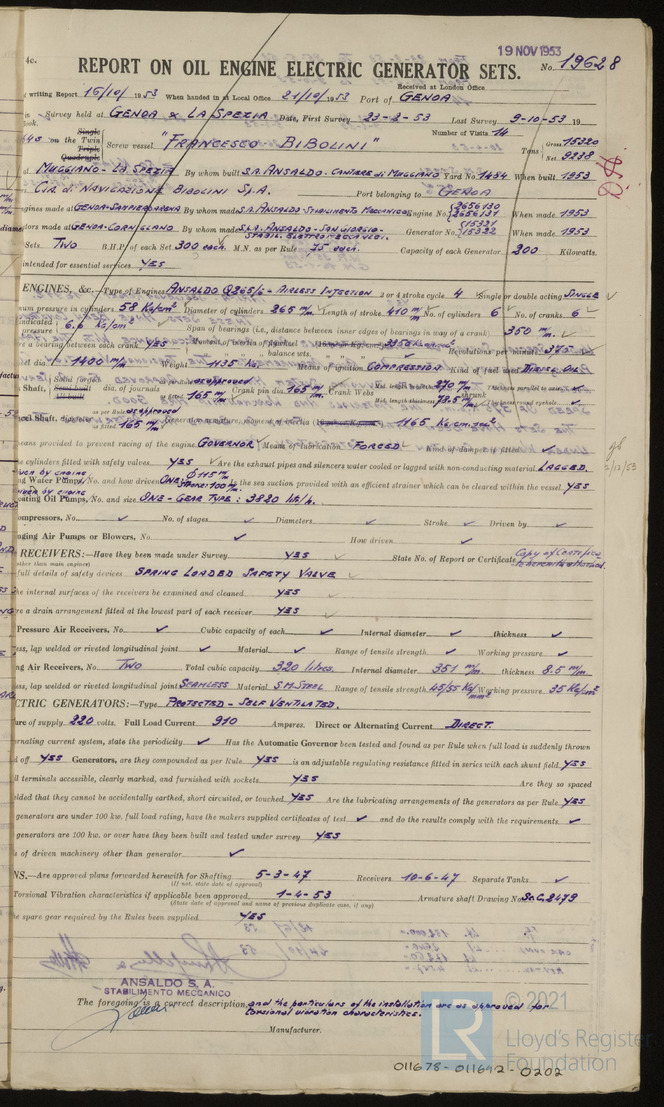 19 NOV 1953
4c. REPORT ON OIL ENGINE ELECTRIC GENERATOR SETS. No. 19628
Received at London Office
writing Report 15/10/1953 When handed in at Local Office 21/10/1953 Port of GENOA
Survey held at GENOA & LA SPEZIA Date, First Survey 23-2-53 Last Survey 9-10-53 19
Number of Visits 14
on the Single Twin Triple Quadruple Screw vessel "FRANCESCO BIBOLINI" Tons Gross 15320 Net 9238
MUGGIANO-LA SPEZIA By whom built S.A. ANSALDO-CANTIERE di MUGGIANO Yard No. 1454 When built 1953
CIA di NAVIGAZIONE BIBOLINI S.p.A. Port belonging to GENOA
made at GENOA-SAMPIERDARENA By whom made S.A. ANSALDO-STABILIMENTO MECCANICO Engine No. 2656130 2656131 When made 1953
made at GENOA-CORNIGLIANO By whom made S.p.A. ANSALDO-SAN GIORGIO- Generator No. 15321 15322 When made 1953
Sets TWO B.H.P. of each Set 300 each. M.N. as per Rule 75 each. Capacity of each Generator 200 Kilowatts.
intended for essential services YES
ENGINES, &c.—Type of Engines ANSALDO Q265/6 - AIRLESS INJECTION 2 or 4 stroke cycle 4 Single or double acting SINGLE
pressure in cylinders 58 Kg/cm² Diameter of cylinders 265 m/m Length of stroke 410 m/m No. of cylinders 6 No. of cranks 6
indicated pressure 6.6 Kg/cm² Span of bearings (i.e., distance between inner edges of bearings in way of a crank) 350 m/m.
a bearing between each crank YES Moment of inertia of flywheel Revolutions per minute 375
dia. 1400 m/m Weight 1135 Kgs. Means of ignition COMPRESSION Kind of fuel used DIESEL OIL
Shaft, Solid forged dia. of journals as approved as fitted 165 m/m Crank pin dia. 165 m/m Crank Webs 270 m/m 78.5 m/m
Shaft, as per Rule as approved as fitted 165 m/m Generator armature, moment of inertia 1165 Kg/cm sec²
means provided to prevent racing of the engine GOVERNOR Means of lubrication FORCED Kind of damper if fitted
cylinders fitted with safety valves YES Are the exhaust pipes and silencers water cooled or lagged with non-conducting material LAGGED.
Water Pumps, No. and how driven ONE the sea suction provided with an efficient strainer which can be cleared within the vessel YES
Oil Pumps, No. and size ONE - GEAR TYPE : 3820 lit/h.
Compressors, No. No. of stages Diameters Stroke Driven by
Air Pumps or Blowers, No. How driven
RECEIVERS:—Have they been made under Survey YES State No. of Report or Certificate Copy of Certifics
full details of safety devices SPRING LOADED SAFETY VALVE
the internal surfaces of the receivers be examined and cleaned YES
a drain arrangement fitted at the lowest part of each receiver YES
Pressure Air Receivers, No. Cubic capacity of each Internal diameter thickness
lap welded or riveted longitudinal joint Material Range of tensile strength Working pressure
Air Receivers, No TWO Total cubic capacity 320 litres. Internal diameter 351 m/m. thickness 8.5 m/m
lap welded or riveted longitudinal joint SEAMLESS Material S.M. STEEL Range of tensile strength 45/55 Kg/mm² Working pressure 35 Kg/cm²
ELECTRIC GENERATORS:—Type PROTECTED - SELF VENTILATED.
of supply 220 volts. Full Load Current 910 Amperes. Direct or Alternating Current DIRECT.
alternating current system, state the periodicity Has the Automatic Governor been tested and found as per Rule when full load is suddenly thrown
off YES Generators, are they compounded as per Rule YES is an adjustable regulating resistance fitted in series with each shunt field YES
terminals accessible, clearly marked, and furnished with sockets YES Are they so spaced
that they cannot be accidentally earthed, short circuited, or touched YES Are the lubricating arrangements of the generators as per Rule YES
generators are under 100 kw. full load rating, have the makers supplied certificates of test and do the results comply with the requirements
generators are 100 kw. or over have they been built and tested under survey YES
of driven machinery other than generator
Are approved plans forwarded herewith for Shafting 5-3-47 Receivers 10-6-47 Separate Tanks
(If not, state date of approval)
Torsional Vibration characteristics if applicable been approved 1-4-53 Armature shaft Drawing No. SaC. 2479
(State date of approval and name of previous duplicate case, if any)
spare gear required by the Rules been supplied YES
ANSALDO S. A.
STABILIMENTO MECCANICO
The foregoing is a correct description, and the particulars of the installation are as approved for
torsional vibration characteristics.
Manufacturer.
LR © 2021
Lloyd's Register
Foundation
011678-011692-0202